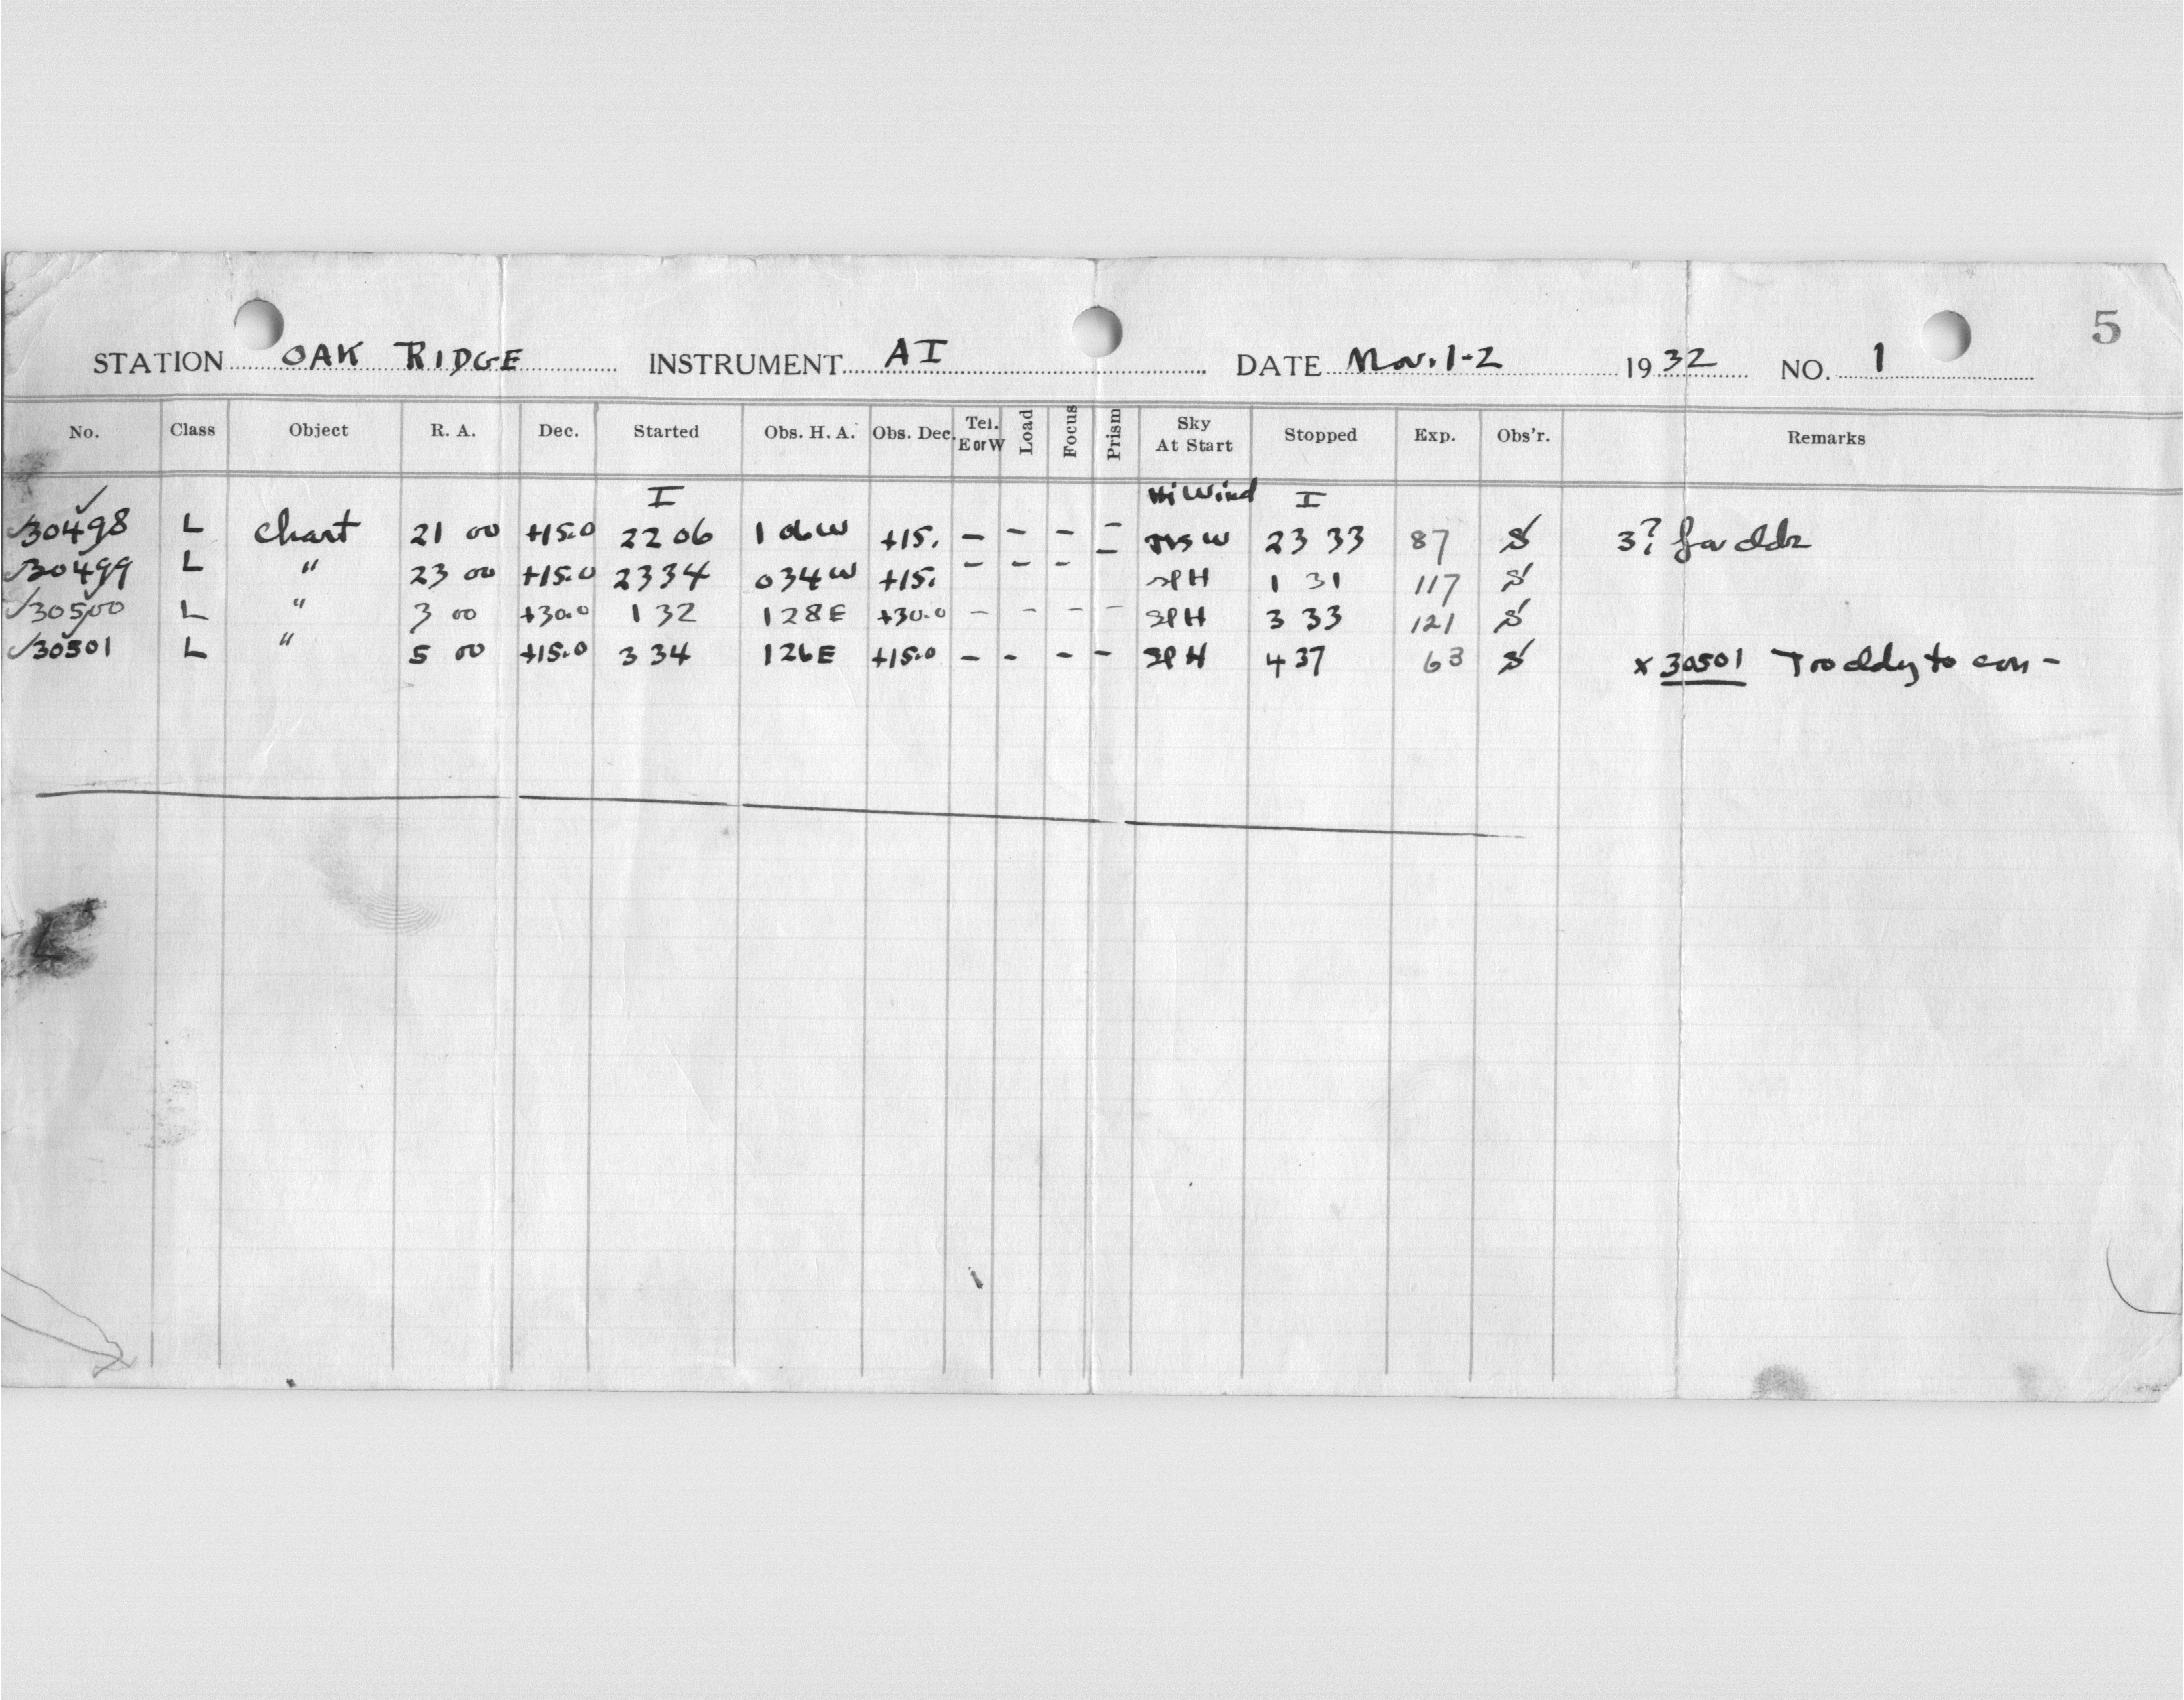 5
STATION OAK RIDGE INSTRUMENT AI DATE Nov. 1-2 1932 NO. 1
No. Class Object R. A. Dec. Started Obs. H. A. Obs. Dec. Tel. E or W Load Focus Prism Sky At Start Stopped Exp. Obs'r. Remarks
I Hi Wind I
✓30498 L Chart 21 00 +15.0 22 06 1 06W +15. - - - - 23 33 87 S 3?
✓30499 L " 23 00 +15.0 23 34 0 34W +15. - - - - SPH 1 31 117 S
✓30500 L " 3 00 +30.0 1 32 1 28E +30.0 - - - - SPH 3 33 121 S
✓30501 L " 5 00 +15.0 3 34 1 26E +15.0 - - - - SPH 4 37 63 S x 30501 Too cldy to con-